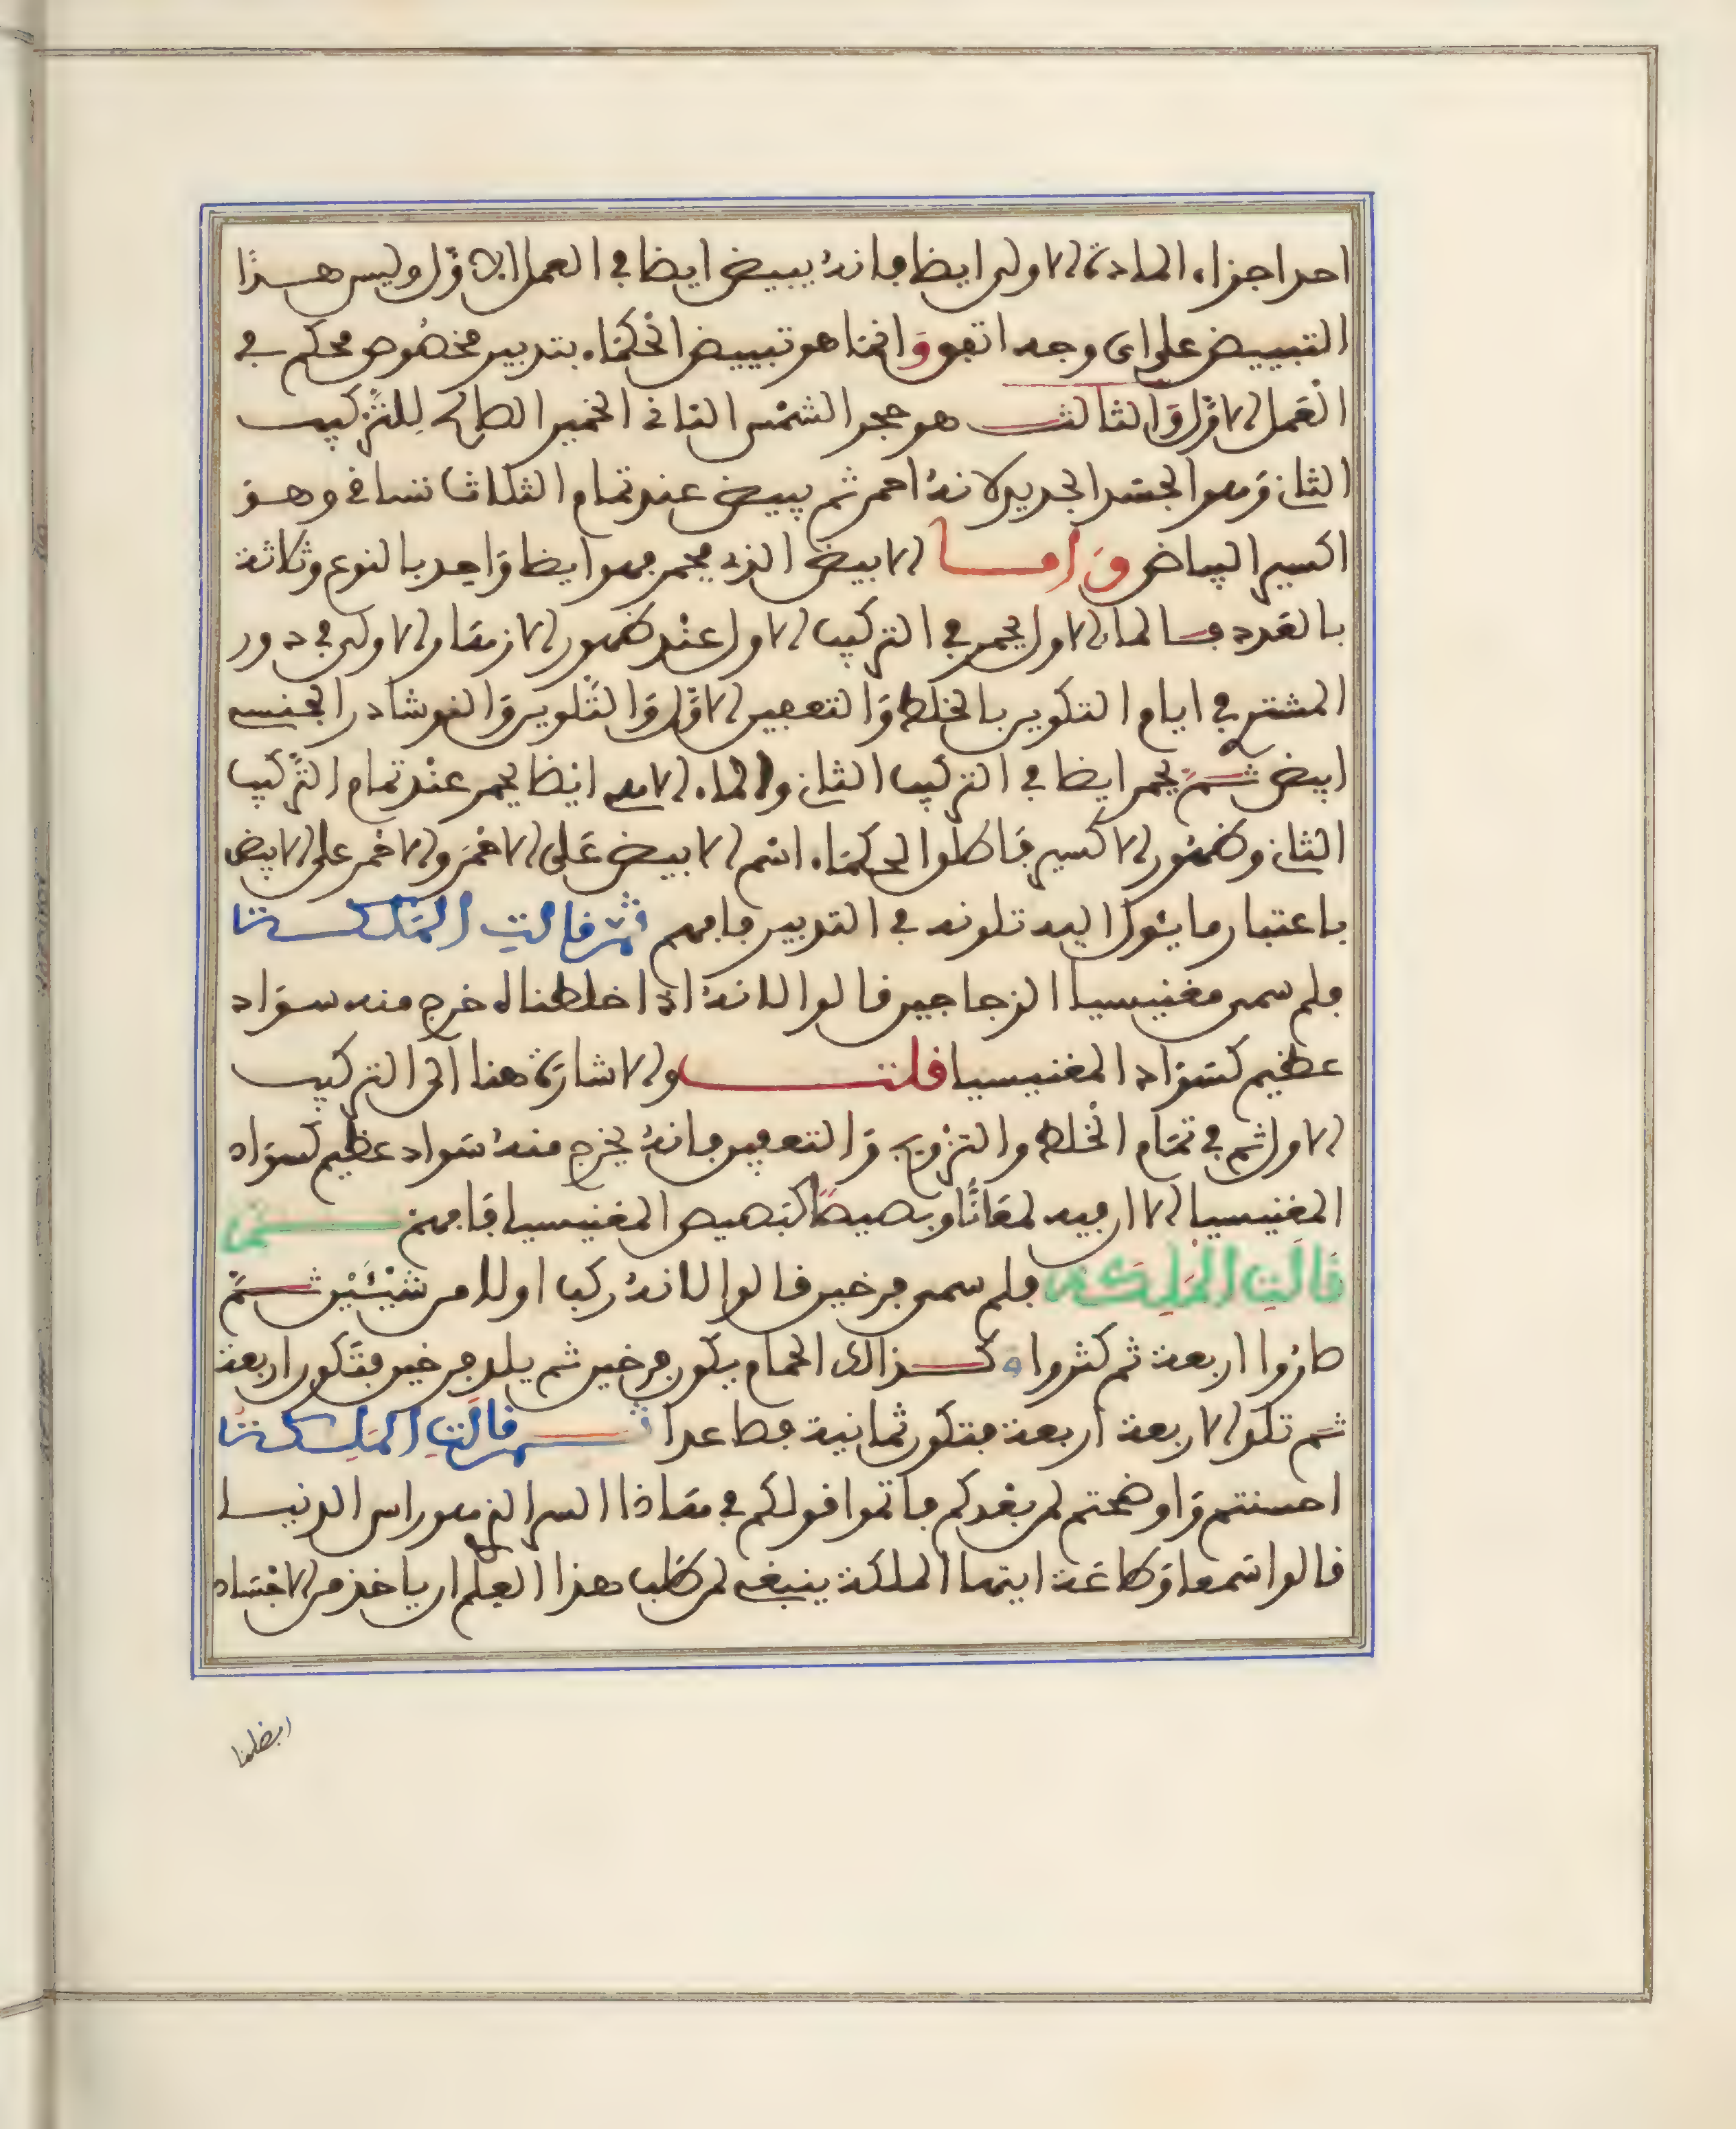 احد اجزاء المادة الاولى ايضا فانه يبيض ايضا في العمل الاول وليس هذا
التبييض على اى وجه اتفق وَانما هو تبييض الحكماء بتدبير مخصُوص محكم في
العَمل الاوّل وَالثالث هو حجر الشمس النافى الخمير الصالح لِلتركيب
الثانى وَهو الجسَد الجديد لانهُ احمر ثم يبيض عند تمام الثلاث تسافى وهو
اكسير البياض وَاما الابيض الذى يحمر فهو ايضا وَاحِد بالنوع وثلاثة
بالعَدد فالماء الاول يحمر في التركيب الاول عنْد ظهور الازهار الاولى في دور
المشترى في ايام التكوير بالخلط وَالتعفين الاوّل وَالتلوين وَالنوشادر الجنسه
ابيض ثم يحمر ايضا في التركيب الثانى والماء الاهى ايْضا يحمر عنْد تمام التركيب
الثانى وظهُور الاكسير فَاطلق الحكمَاء اسْم الابيض عَلى الاحْمَر والاحْمر على الابيض
باعتبار ما يئول اليه تلونه في التدبير فافهم ثم قالت الملكة
فلم سمى مغنيسيا الزجاجين قالوا لانهُ اذا خلطناه خرج منه سوَاد
عظيم كسَوَاد المغنيسيا قلت والاشارة هنا الى التركيب
الاول ثم في تمَام الخلط والتزويج وَالتعفين فانهُ يخرج منهُ سَواد عظيم كسوَاد
المغنيسيا الا ان فيه لمعَانًا وبصيصًا كبَصيص المغنيسيا فَافهم ثم
قَالَتِ المَلِكة فلم سمى فرخين قالوا لانهُ ركب اولا من شيْئَيْن ثم
صَارُوا اربعة ثم كثروا وكذالك الحمام يكون فرخين ثم يلد فرخين فتكون اربعة
ثم تلد الاربعة اربعة فتكون ثمانية فصاعدا ثم قالَتِ الملِكة
احسنتم وَاوضحتم لمن بعْدكم فاتموا قولكم في مَاذا السر الذى هو راس الدنيا
قالوا سَمعا وَطاعَة ايتها الملكة ينبغى لمن طلب هذا العِلم ان ياخذ من الاجْسَاد
افضلها